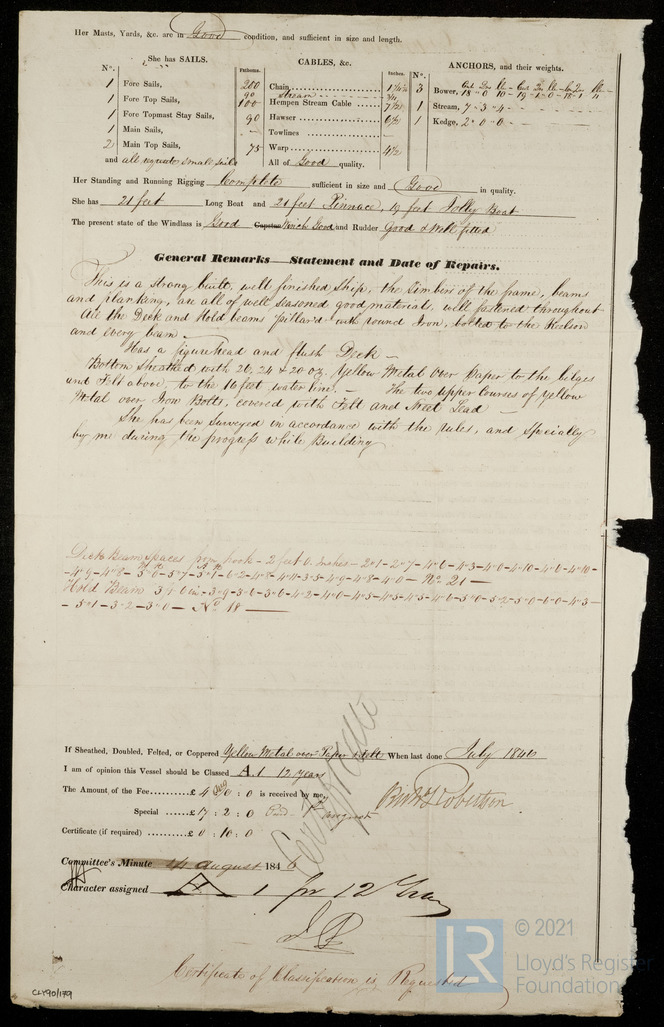 Her Masts, Yards, &c. are in Good condition, and sufficient in size and length.
She has SAILS.
CABLES, &c.
ANCHORS, and their weights.
N°.
Fathoms.
Inches.
N°.
1 Fore Sails,
1 Fore Top Sails,
1 Fore Topmast Stay Sails,
1 Main Sails,
2 Main Top Sails,
and all requisite small sails
200 Chain
90 stream
100 Hempen Stream Cable 7½
90 Hawser 6½
Towlines
75 Warp 4½
All of Good quality.
3 Bower,
1 Stream, 7 - 3 - 4 -
1 Kedge, 2 - 0 - 0 -
Her Standing and Running Rigging Complete sufficient in size and Good in quality.
She has 21 feet Long Boat and 21 feet Pinnace, 19 feet Jolly Boat
The present state of the Windlass is Good Capstan Winch Good and Rudder Good & Well fitted
General Remarks—Statement and Date of Repairs.
This is a strong built, well finished Ship, the timbers of the frame, beams
and planking, are all of well seasoned good materials, well fastened throughout
All the Deck and Hold beams pillar'd with round Iron, bolted to the Keelson
and every beam -
Has a figurehead and flush Deck -
Bottom Sheathed with 26, 24 & 20 oz. Yellow Metal Over Paper to the bilges
and Felt above, to the 16 feet water line. - The two upper Courses of Yellow
Metal over Iron Bolts, covered with Felt and Sheet Lead -
She has been Surveyed in accordance with the rules, and Specially
by me during the progress while Building
Deck Beam spaces from hook - 2 feet 0 inches - 2"1 - 2"7 - 4"6 - 4"3 - 4"0 - 4"10 - 4"6 - 4"10 -
- 4"9 - 4"8 - 5"0 - 5"7 - 5"1 - 6"2 - 4"8 - 4"11 - 3"5 - 4"9 - 4"8 - 4"0 - No 21 -
Hold Beam 3 ft 6 in - 3"9 - 3"6 - 3"6 - 4"2 - 4"0 - 4"5 - 4"5 - 4"5 - 4"6 - 5"0 - 5"2 - 5"0 - 6"0 - 4"3 -
- 5"1 - 3"2 - 3"0 - No 18 -
Certificate
If Sheathed, Doubled, Felted, or Coppered Yellow Metal over Paper & Felt When last done July 1846
I am of opinion this Vessel should be Classed A.1 12 years
The Amount of the Fee......£ 4 : 0 : 0 is received by me,
Special ......£ 17 : 2 : 0 Paid August
Robertson
Certificate (if required) .........£ 0 : 10 : 0
Committee's Minute 14 August 1846
Character assigned A 1 for 12 Years
Certificate of Classification is Requested
CLY90/179
LR
© 2021
Lloyd's Register
Foundation